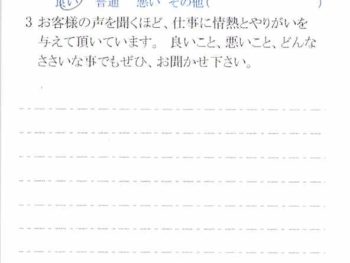 良い 普通 悪い その他( )
3 お客様の声を聞くほど、仕事に情熱とやりがいを
与えて頂いています。 良いこと、悪いこと、どんな
ささいな事でもぜひ、お聞かせ下さい。